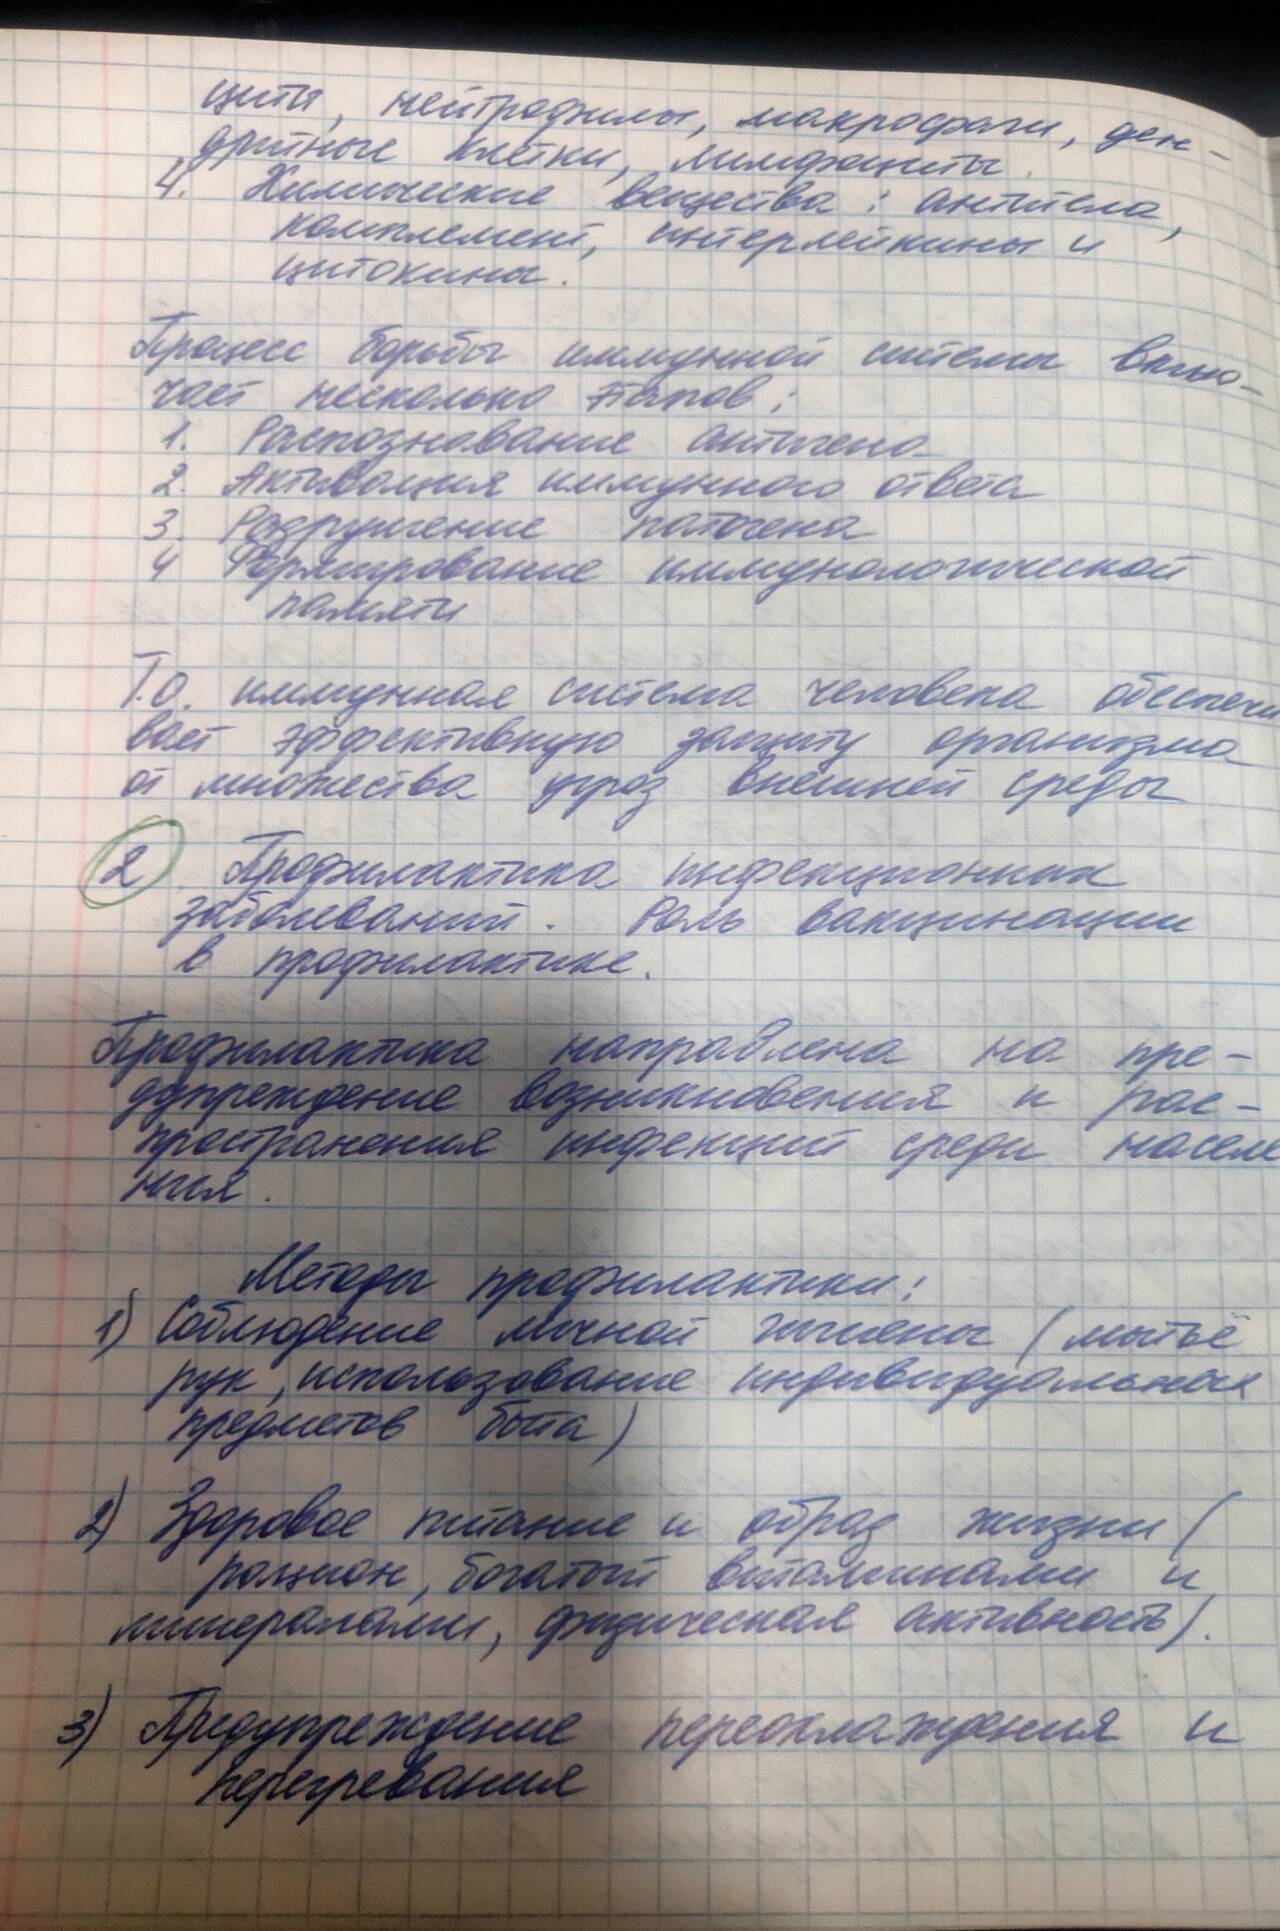 циты, нейтрофилы, макрофаги, ден-
дритные клетки, лимфоциты.
4. Химические вещества: антитела,
комплемент, интерлейкины и
цитокины.
Процесс борьбы иммунной системы вклю-
чает несколько этапов:
1. Распознование антигена
2. Активация иммунного ответа
3. Разрушение патогена
4 Формирование иммунологической
памяти
Т.о. иммунная система человека обеспечи
вает эффективную защиту организма
от множества угроз внешней среды
2. Профилактика инфекционных
заболеваний. Роль вакцинации
в профилактике.
Профилактика направлена на пре-
дупреждение возникновения и рас-
пространения инфекций среди населе
ния.
Методы профилактики:
1) Соблюдение личной гигиены (мытьё
рук, использование индивидуальных
предметов быта)
2) Здоровое питание и образ жизни (
рацион, богатый витаминами и
минералами, физическая активность).
3) Предупреждение переохлаждения и
перегревания